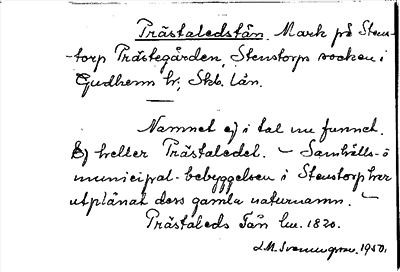 Prästaledstån. Mark på Stens-
torp Prästegården, Stenstorps socken i
Gudhems hr; Skb. län.
Namnet ej i tal nu funnet.
Ej heller Prästaledet. – Samhälls- o
municipal-bebyggelsen i Stenstorp har
utplånat dess gamla naturnamn. –
Prästaleds Tån lm. 1820.
L. M. Svenungsson. 1950.